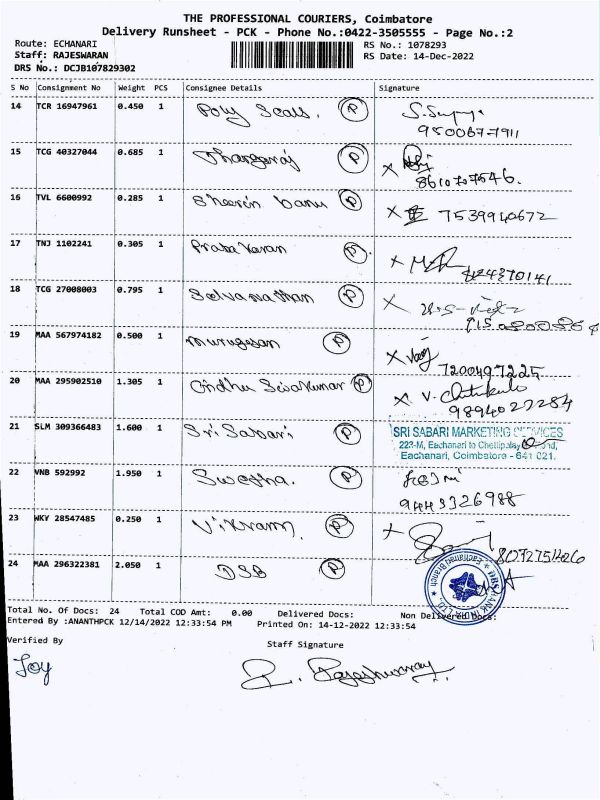 THE PROFESSIONAL COURIERS, Coimbatore
Delivery Runsheet - PCK - Phone No.:0422-3505555 - Page No.:2
Route: ECHANARI
RS No.: 1078293
Staff: RAJESWARAN
RS Date: 14-Dec-2022
DRS No.: DCJB107829302
S No Consignment No Weight PCS Consignee Details Signature
14 TCR 16947961 0.450 1 Poly Seals. P
9500677911
15 TCG 40327044 0.685 1 Thangaraj P
8610707546.
16 TVL 6600992 0.285 1 Sheerin banu P 7539940672
17 TNJ 1102241 0.305 1 Praba Karan P
18 TCG 27008003 0.795 1 Selvanathan P
19 MAA 567974182 0.500 1 Murugesan P
7200497225
20 MAA 295902510 1.305 1 Sivakumar P
9894027284
21 SLM 309366483 1.600 1 Sri Sabari P
SRI SABARI MARKETING SERVICES
223-M, Eachanari to Chettipalayam
Eachanari, Coimbatore - 641 021.
22 VNB 592992 1.950 1 Swetha. P
9443326988
23 WKY 28547485 0.250 1 Vikram. P
24 MAA 296322381 2.050 1 DSB P
Eachanari Branch
Total No. Of Docs: 24 Total COD Amt: 0.00 Delivered Docs: Non Delivered Docs:
Entered By :ANANTHPCK 12/14/2022 12:33:54 PM Printed On: 14-12-2022 12:33:54
Verified By Staff Signature
Joy
R. Rajeshwaran